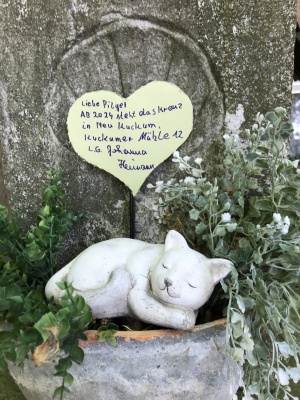 Liebe Pilger
AB 2024 steht das Kreuz
in Neu Kuckum,
Kuckumer Mühle 12
L.G. Johanna
Heinen